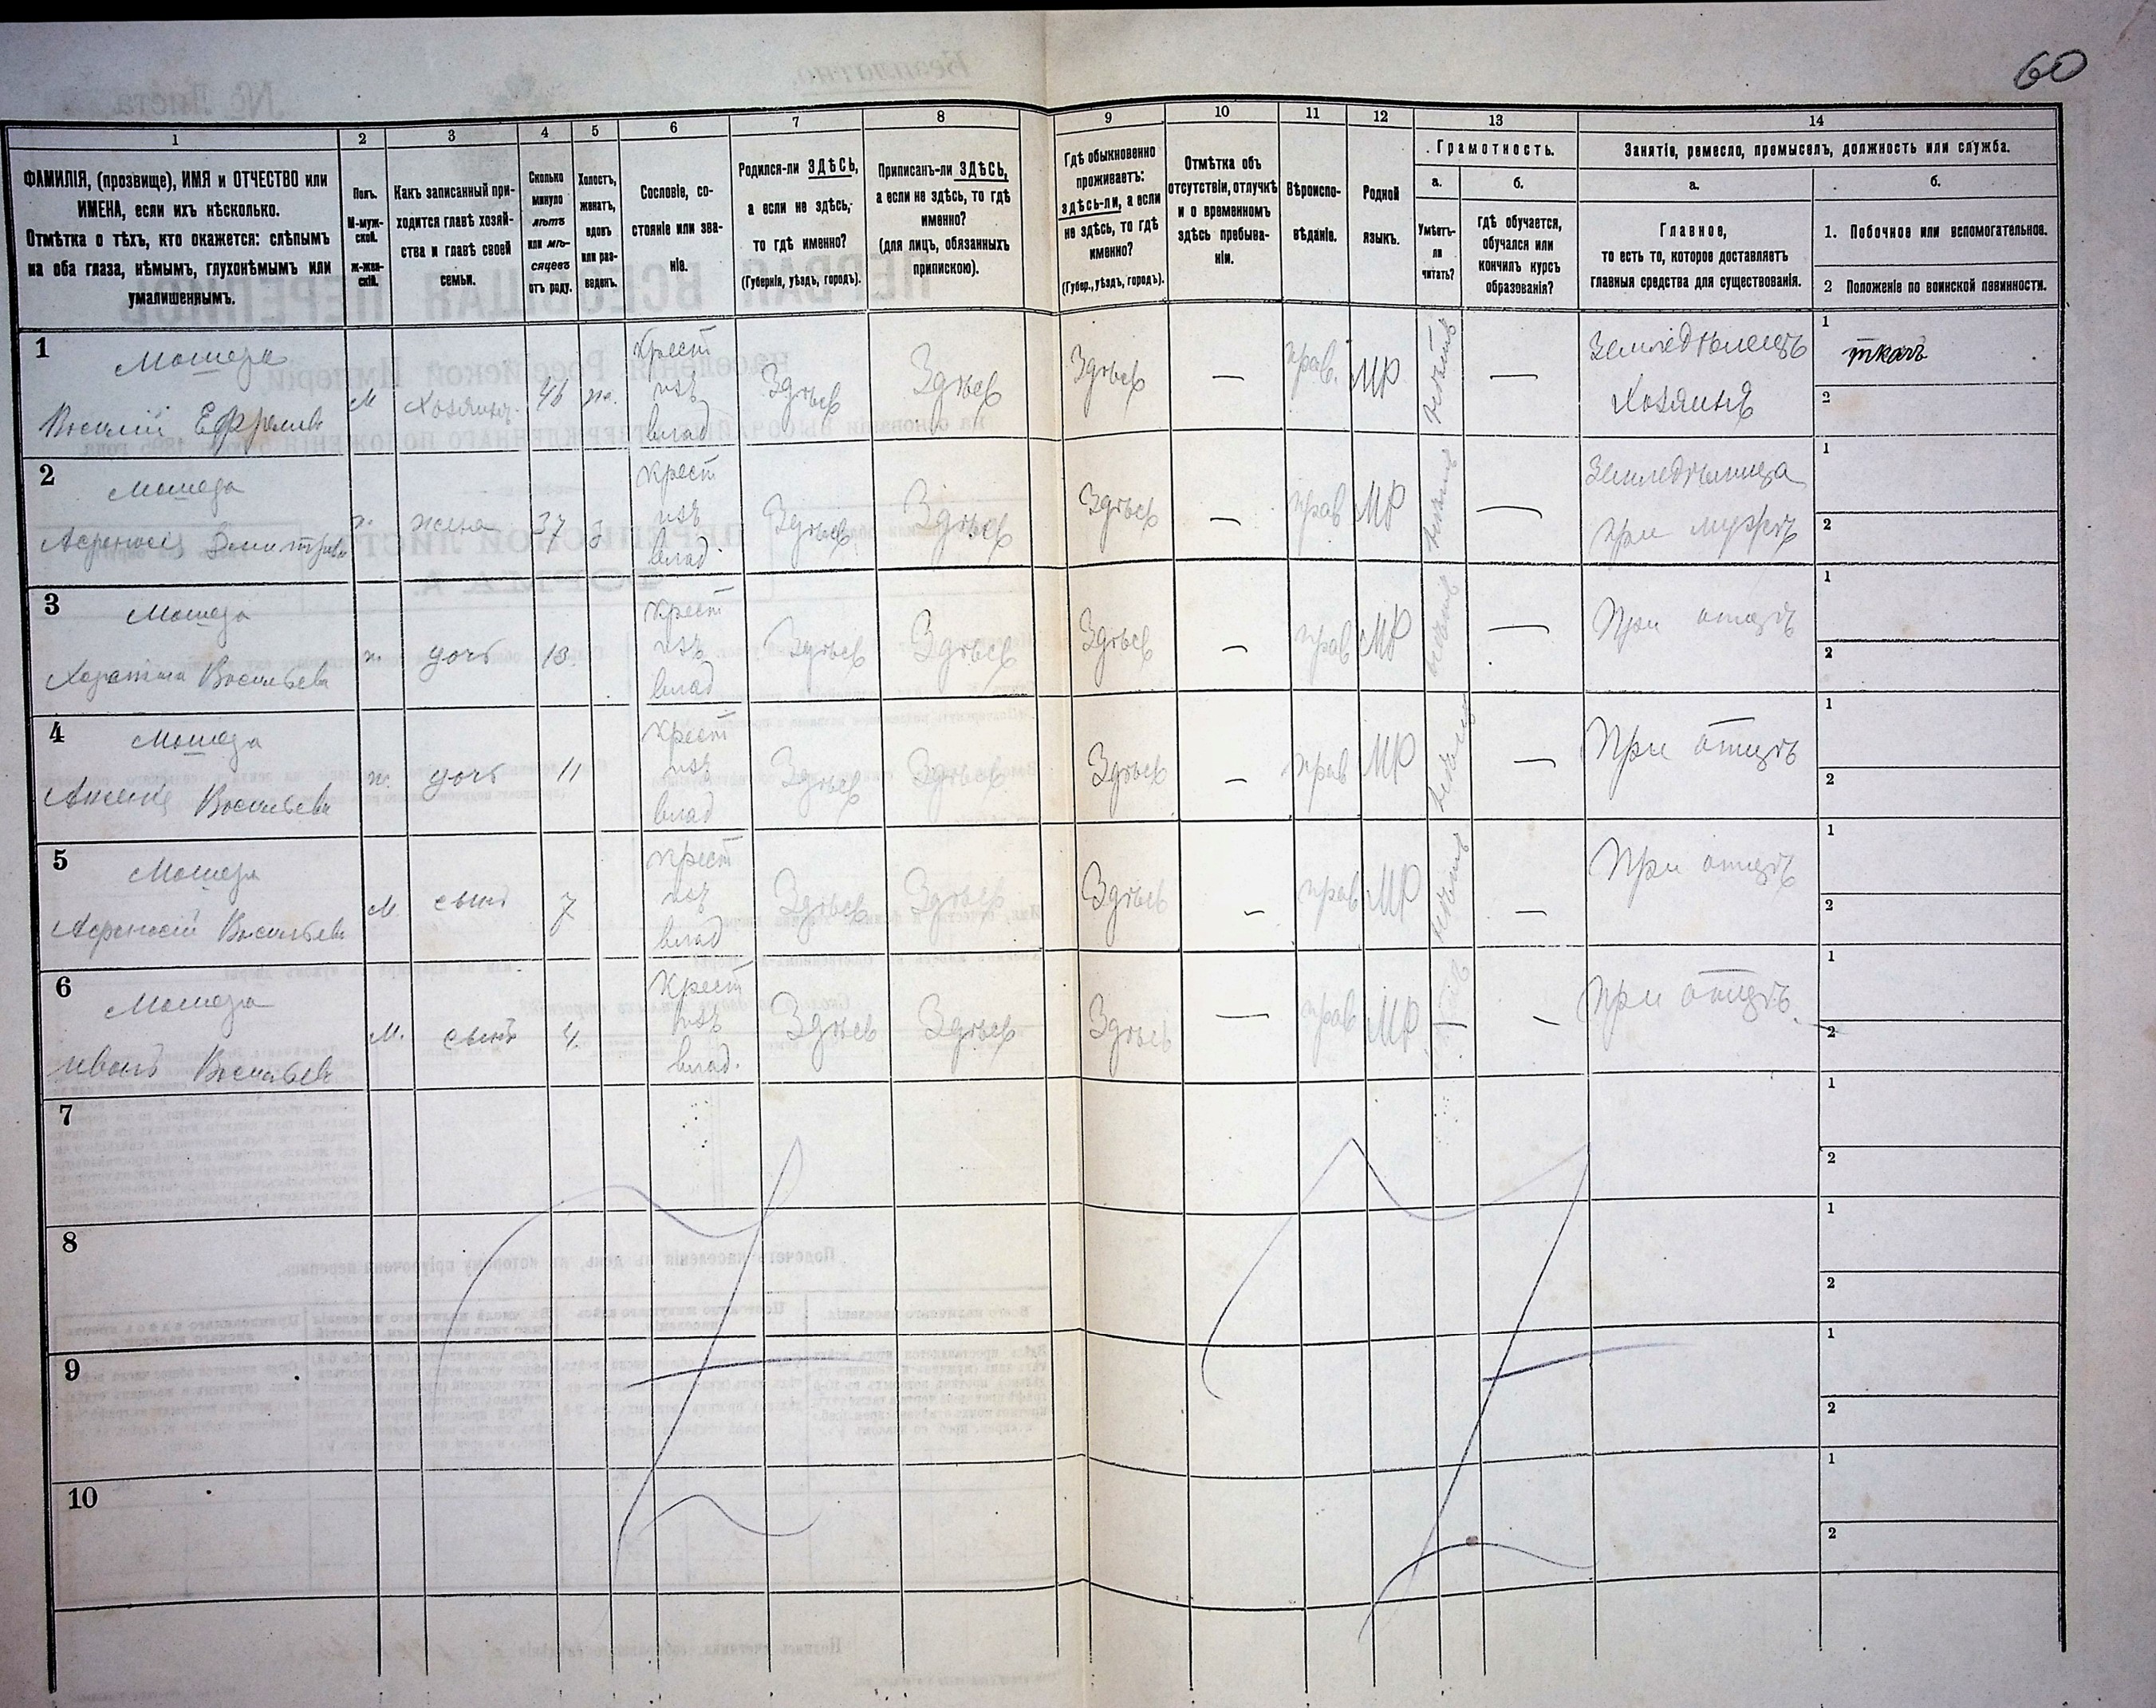 60
1
2
3
4
5
6
7
8
9
10
11
12
13
14
ФАМИЛІЯ, (прозвище), ИМЯ и ОТЧЕСТВО или
ИМЕНА, если ихъ нѣсколько.
Отмѣтка о тѣхъ, кто окажется: слѣпымъ
на оба глаза, нѣмымъ, глухонѣмымъ или
умалишеннымъ.
Полъ.
М-муж-
ской.
ж-жен-
скій.
Какъ записанный при-
ходится главѣ хозяй-
ства и главѣ своей
семьи.
Сколько
минуло
лѣтъ
или мѣ-
сяцевъ
отъ роду.
Холостъ,
женатъ,
вдовъ
или раз-
веденъ.
Сословіе, со-
стояніе или зва-
ніе.
Родился-ли ЗДѢСЬ,
а если не здѣсь,
то гдѣ именно?
(Губернія, уѣздъ, городъ).
Приписанъ-ли ЗДѢСЬ,
а если не здѣсь, то гдѣ
именно?
(для лицъ, обязанныхъ
припискою).
Гдѣ обыкновенно
проживаетъ:
здѣсь-ли, а если
не здѣсь, то гдѣ
именно?
(Губер., уѣздъ, городъ).
Отмѣтка объ
отсутствіи, отлучкѣ
и о временномъ
здѣсь пребыва-
ніи.
Вѣроиспо-
вѣданіе.
Родной
языкъ.
Грамотность.
а.
Умѣетъ-
ли
читать?
б.
гдѣ обучается,
обучался или
кончилъ курсъ
образованія?
Занятіе, ремесло, промыселъ, должность или служба.
а.
Главное,
то есть то, которое доставляетъ
главныя средства для существованія.
б.
1. Побочное или вспомогательное.
2 Положеніе по воинской повинности.
1
Мошера
Василій Ефремовъ
М Хозяинъ 46 ж.
Крест
изъ
влад
Здѣсь Здѣсь Здѣсь — прав. МР
Земледѣлецъ
Хозяинъ
1 ткачъ
2
2
Мошера
ж. жена 37 з
Крест
изъ
влад.
Здѣсь Здѣсь Здѣсь — прав МР —
Земледѣлица
при мужѣ
1
2
3
Мошера
Васильева
ж. дочь 13
Крест
изъ
влад
Здѣсь Здѣсь Здѣсь — прав МР —
При отцѣ
1
2
4
Мошера
Васильева
ж. дочь 11
Крест
изъ
влад
Здѣсь Здѣсь Здѣсь — прав МР —
При отцѣ
1
2
5
Мошера
Афанасій Васильевъ
М. сынъ 7
Крест
изъ
влад
Здѣсь Здѣсь Здѣсь — прав МР —
При отцѣ
1
2
6
Мошера
Иванъ Васильевъ
М. сынъ 4
Крест
изъ
влад.
Здѣсь Здѣсь Здѣсь — прав МР —
При отцѣ.
1
2
7
1
2
8
1
2
9
1
2
10
1
2